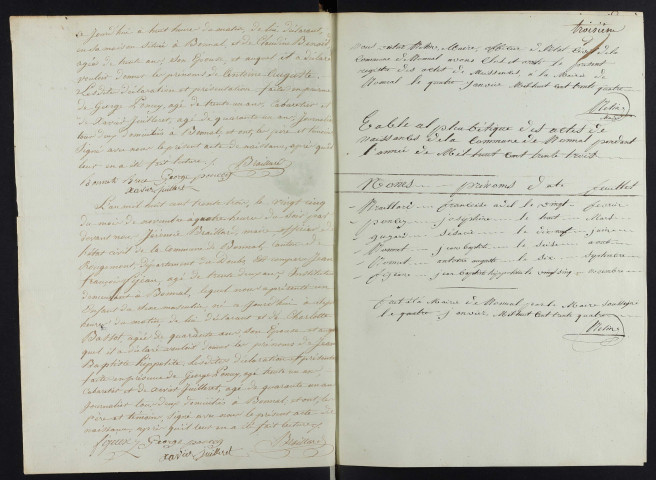 ce jourd'hui à huit heures du matin, de lui déclarant,
en sa maison située à Bonnal, et de Claudine Benoit
agée de trente ans, son Epouse, et auquel il a déclaré
vouloir donner les prénoms de Antoine Auguste
Lesdites déclaration et présentation faites en présence
de George Poncey, agé de trente un ans, Cabaretier et
de Xavier Juillert, agé de quarante un ans, Journalier
tous deux domiciliés à Bonnal, et ont, les père et témoins
signé avec nous le présent acte de naissance, après qu'il
leur en a été fait lecture.
George Poncey
Xavier Juillert
L'an mil huit cent trente trois, le vingt cinq
du mois de novembre à quatre heures du soir par
devant nous Braillard, maire officier de
l'état civil de la commune de Bonnal, canton de
Rougemont, département du Doubs, est comparu Jean
françois agé de trente deux ans,
demeurant à Bonnal, lequel nous a présenté un
Enfant du sexe masculin, né à jourd'hui à
heures du matin, de lui déclarant et de Charlotte
agée de quarante ans son Epouse et au
quel il a déclaré vouloir donner les prénoms de Jean
Baptiste hippolite. Lesdites déclaration et présentation
faites en présence de George Poncey, agé trente un ans,
Cabaretier et de Xavier Juillert, agé de quarante un ans
journalier tous deux domiciliés à Bonnal et ont, les
père et témoins, signé avec nous le présent acte de
naissance, après qu'il leur en a été fait lecture
George Poncey
Xavier Juillert
troisième
nous Maire, officier de l'Etat Civil de la
Commune de Bonnal avons clos et arrêté le présent
registre des actes de Naissances, à la Mairie de
Bonnal le quatre janvier Mil huit cent trente quatre
Table alphabétique des actes de
naissances de la Commune de Bonnal pendant
l'année de Mil huit cent trente trois
Noms prénoms date feuillet
Braillard françoise le vingt fevrier
poncey joséphine le huit Mars
désiré le vingt juin
Bonnot jean baptiste le seize aout
Bonnot antoine auguste le dix
jean baptiste hippolite le vingt cinq novembre
fait à la Mairie de Bonnal par le Maire soussigné
le quatre janvier Mil huit cent trente quatre